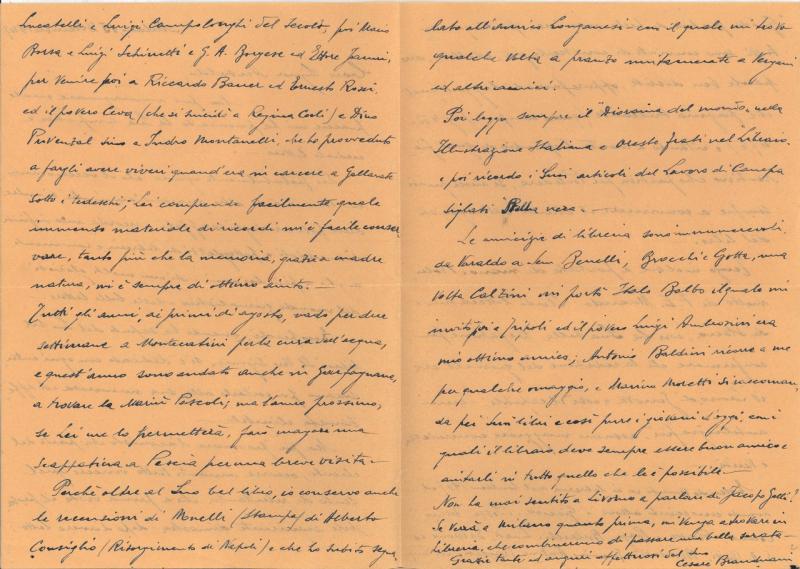 Lucatelli e Luigi Campolonghi del Secolo, poi Mario
Borsa e Luigi Schinetti e G. A. Borgese ed Ettore Janni,
per venire poi a Riccardo Bauer ed Ernesto Rossi
ed il povero Ceva (che si suicidò a Regina Coeli) e Dino
Provenzal sino a Indro Montanelli, che ho provveduto
a fargli avere viveri quand'era in carcere a Gallarate
sotto i tedeschi; Lei comprende facilmente quale
immenso materiale di ricordi mi è facile conser
vare, tanto più che la memoria, grazie a madre
natura, mi è sempre di ottimo aiuto. —
Tutti gli anni, ai primi di agosto, vado per due
settimane a Montecatini per la cura dell'acqua,
e quest'anno sono andato anche in Garfagnana,
a trovare la Mariù Pascoli; ma l'anno prossimo,
se Lei me lo permetterà, farò magari una
scappatina a Pescia per una breve visita —
Perchè oltre al Suo bel libro, io conservo anche
le recensioni di Morelli (Stampa) di Alberto
Consiglio (Risorgimento di Napoli) e che ho subito segna
lato all'Amico Longanesi con il quale mi trovo
qualche volta a pranzo unitamente a Vergani
ed altri amici.
Poi leggo sempre il "Diorama del mondo" nella
Illustrazione Italiana e Oreste frati nel Libraio.
e poi ricordo i Suoi articoli del Lavoro di Canepa
siglati Stella nera. —
Le amicizie di libreria sono innumerevoli.
da Varaldo a Sem Benelli, Brocchi e Gotta, una
volta Calzini mi portò Italo Balbo il quale mi
invitò poi a Tripoli ed il povero Luigi Ambrosini era
mio ottimo amico; Antonio Baldini ricorre a me
per qualche omaggio, e Marino Moretti si raccoman,
da pei Suoi libri e così pure i giovani d'oggi, con i
quali il libraio deve sempre essere buon amico e
aiutarli in tutto quello che le è possibile —
Non ha mai sentito a Livorno a parlare di Jacopo Gelli?
Se verrà a Milano quanto prima, mi venga a trovare in
libreria, che combineremo di passare una bella serata —
Grazie tante ed auguri affettuosi dal Suo
Cesare Branduani